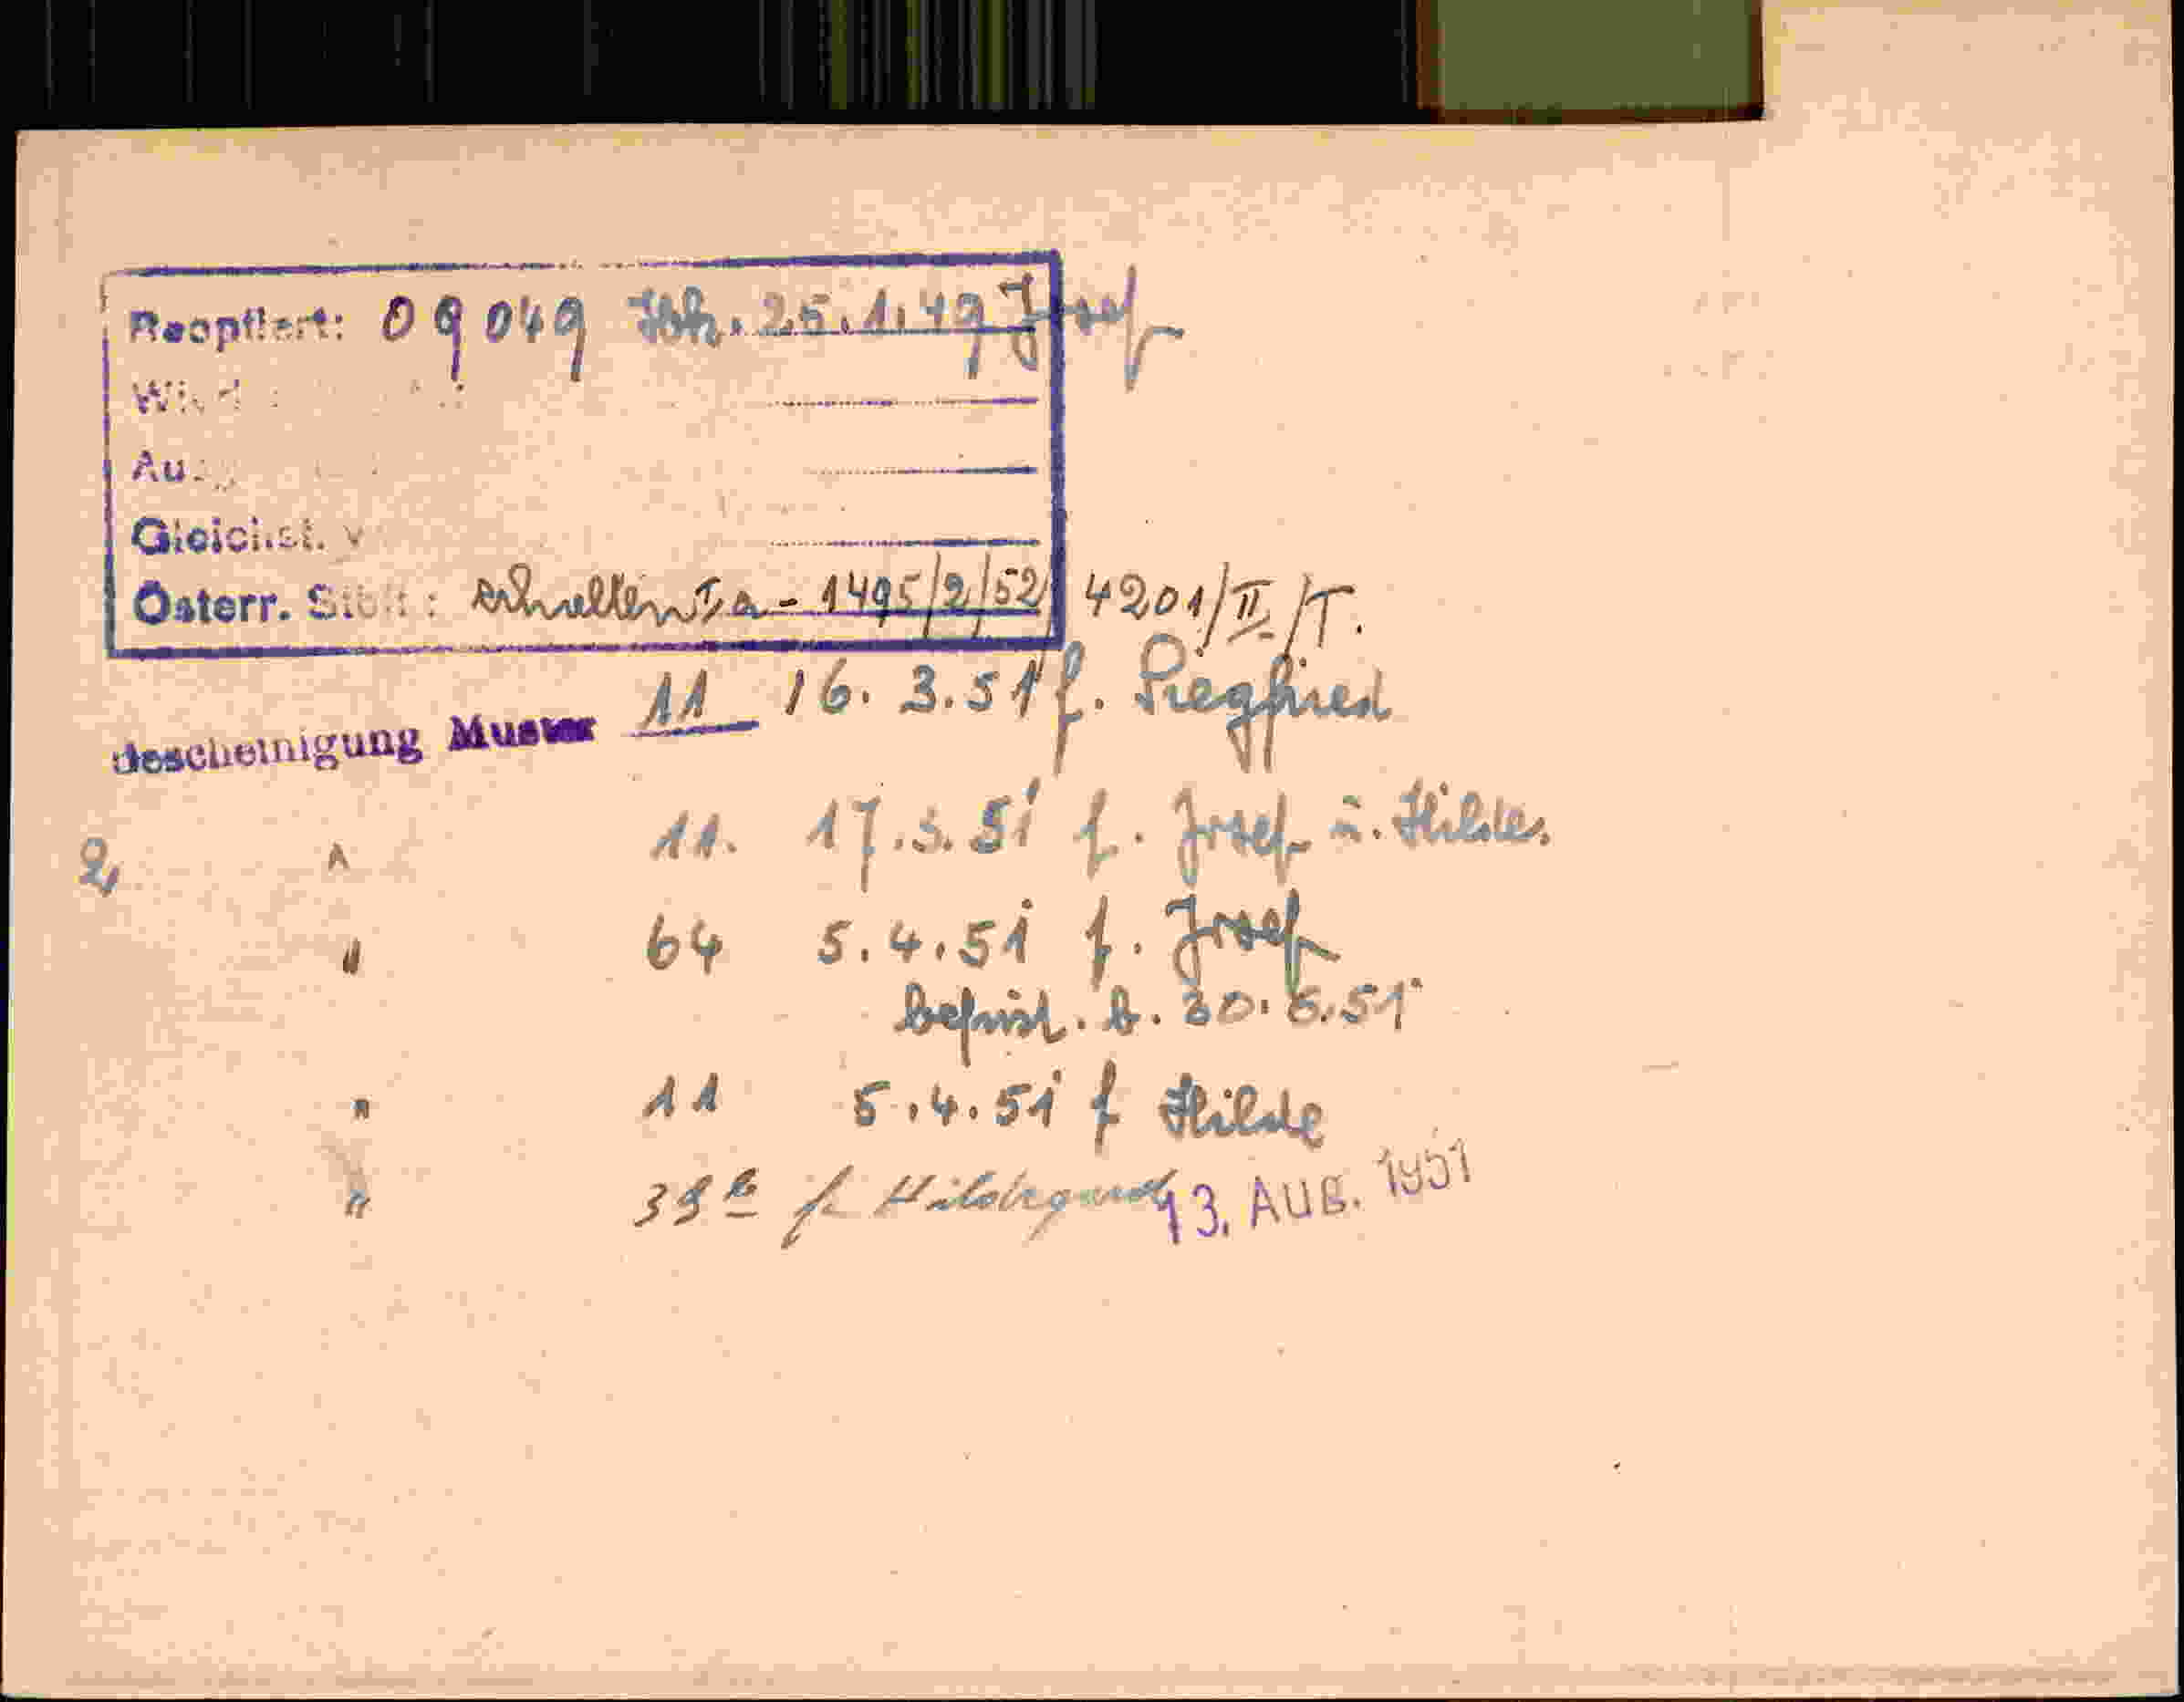 Reoptiert: 09049 Ibk. 25.1.49 Josef
Gleichst. v
Österr. Stbft: erhalten Ia - 1495/2/52 4201/II/T.
Bescheinigung Muster 11 16. 3. 51 f. Siegfried
2 " 11. 17.3.51 f. Josef u. Hilde.
" 64 5.4.51 f. Josef
befrist. b. 30.6.51
" 11 5.4.51 f Hilde
" f. Hildegard 13. AUG. 1951